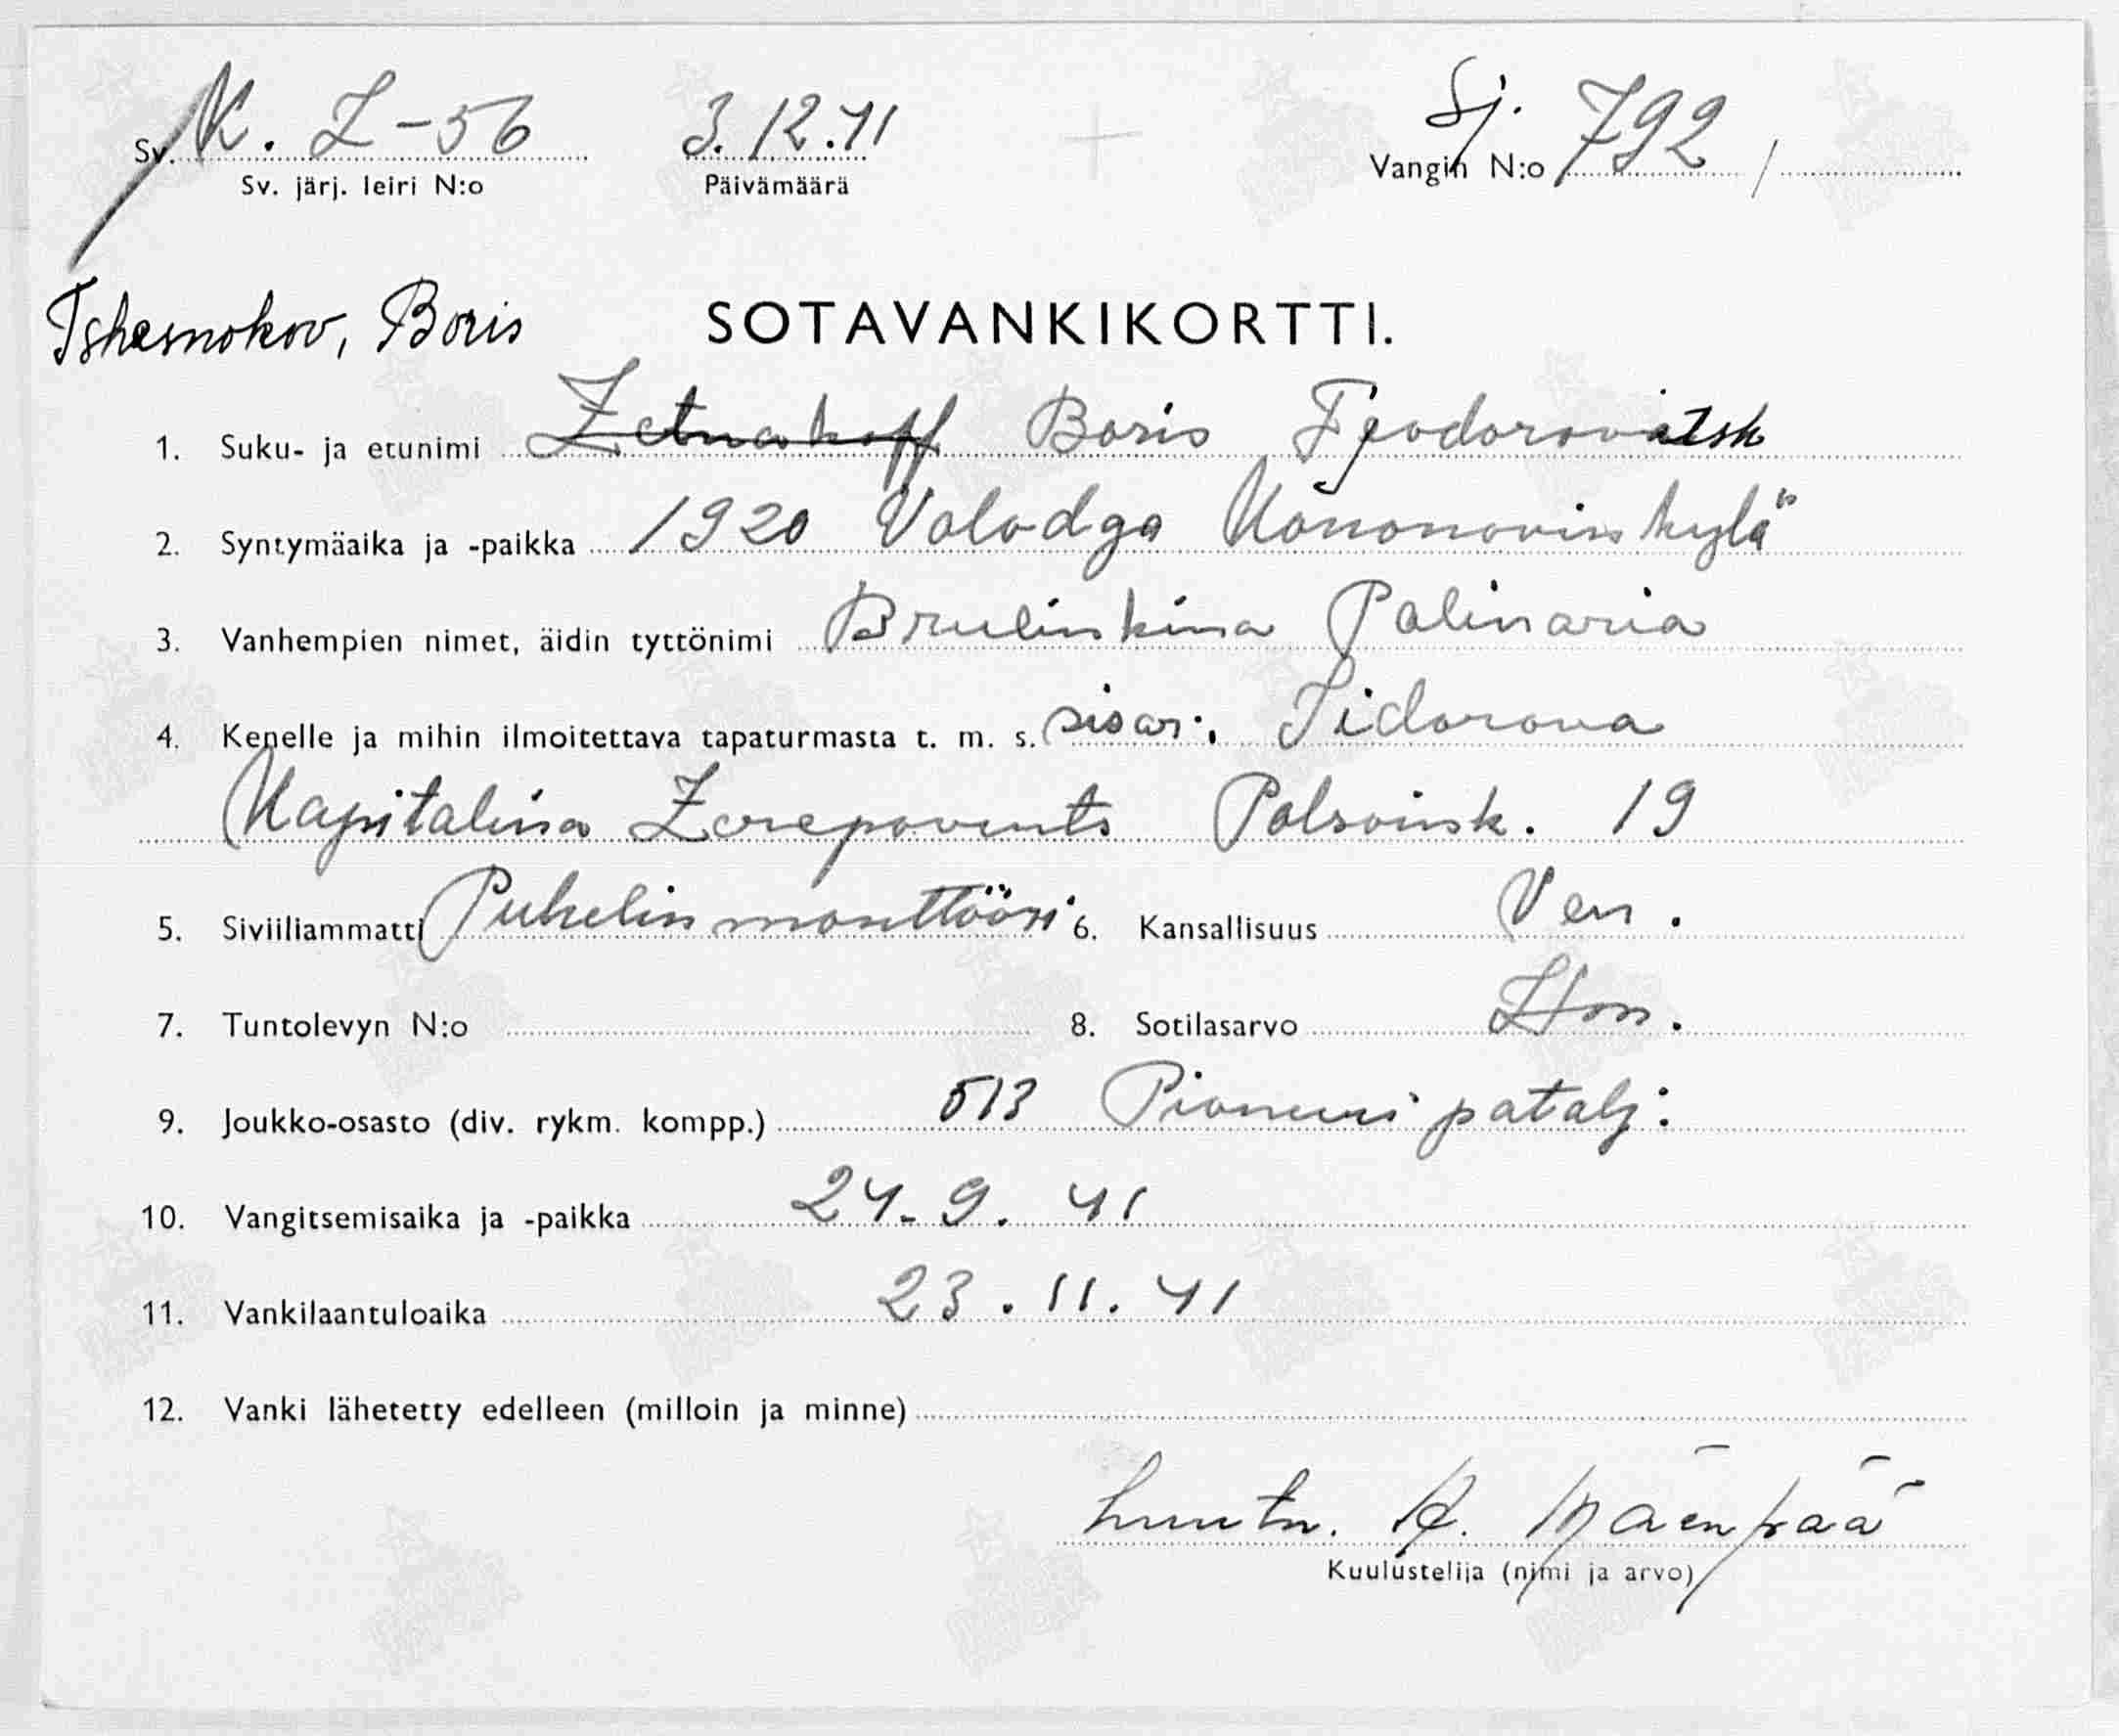 Sv. K. Z-56 3.12.41 Sj. Vangin N:o 792 /
Sv. järj. leiri N:o Päivämäärä
Tshesnokov, Boris SOTAVANKIKORTTI.
1. Suku- ja etunimi Zetnakoff Boris Fjodorovitsh
2. Syntymäaika ja -paikka 1920 Volodga Kononovin kylä
3. Vanhempien nimet, äidin tyttönimi Brulinkina Palinaria
4. Kenelle ja mihin ilmoitettava tapaturmasta t. m. s. sisar: Sidorova
Kapitalina Zerepovents 19
5. Siviiliammatti Puhelinmonttööri 6. Kansallisuus Ven.
7. Tuntolevyn N:o 8. Sotilasarvo Stm.
9. Joukko-osasto (div. rykm. kompp.) 513 Pioneeri patalj:
10. Vangitsemisaika ja -paikka 24.9.41
11. Vankilaantuloaika 23.11.41
12. Vanki lähetetty edelleen (milloin ja minne)
Luutn. A. Mäenpää
Kuulustelija (nimi ja arvo)